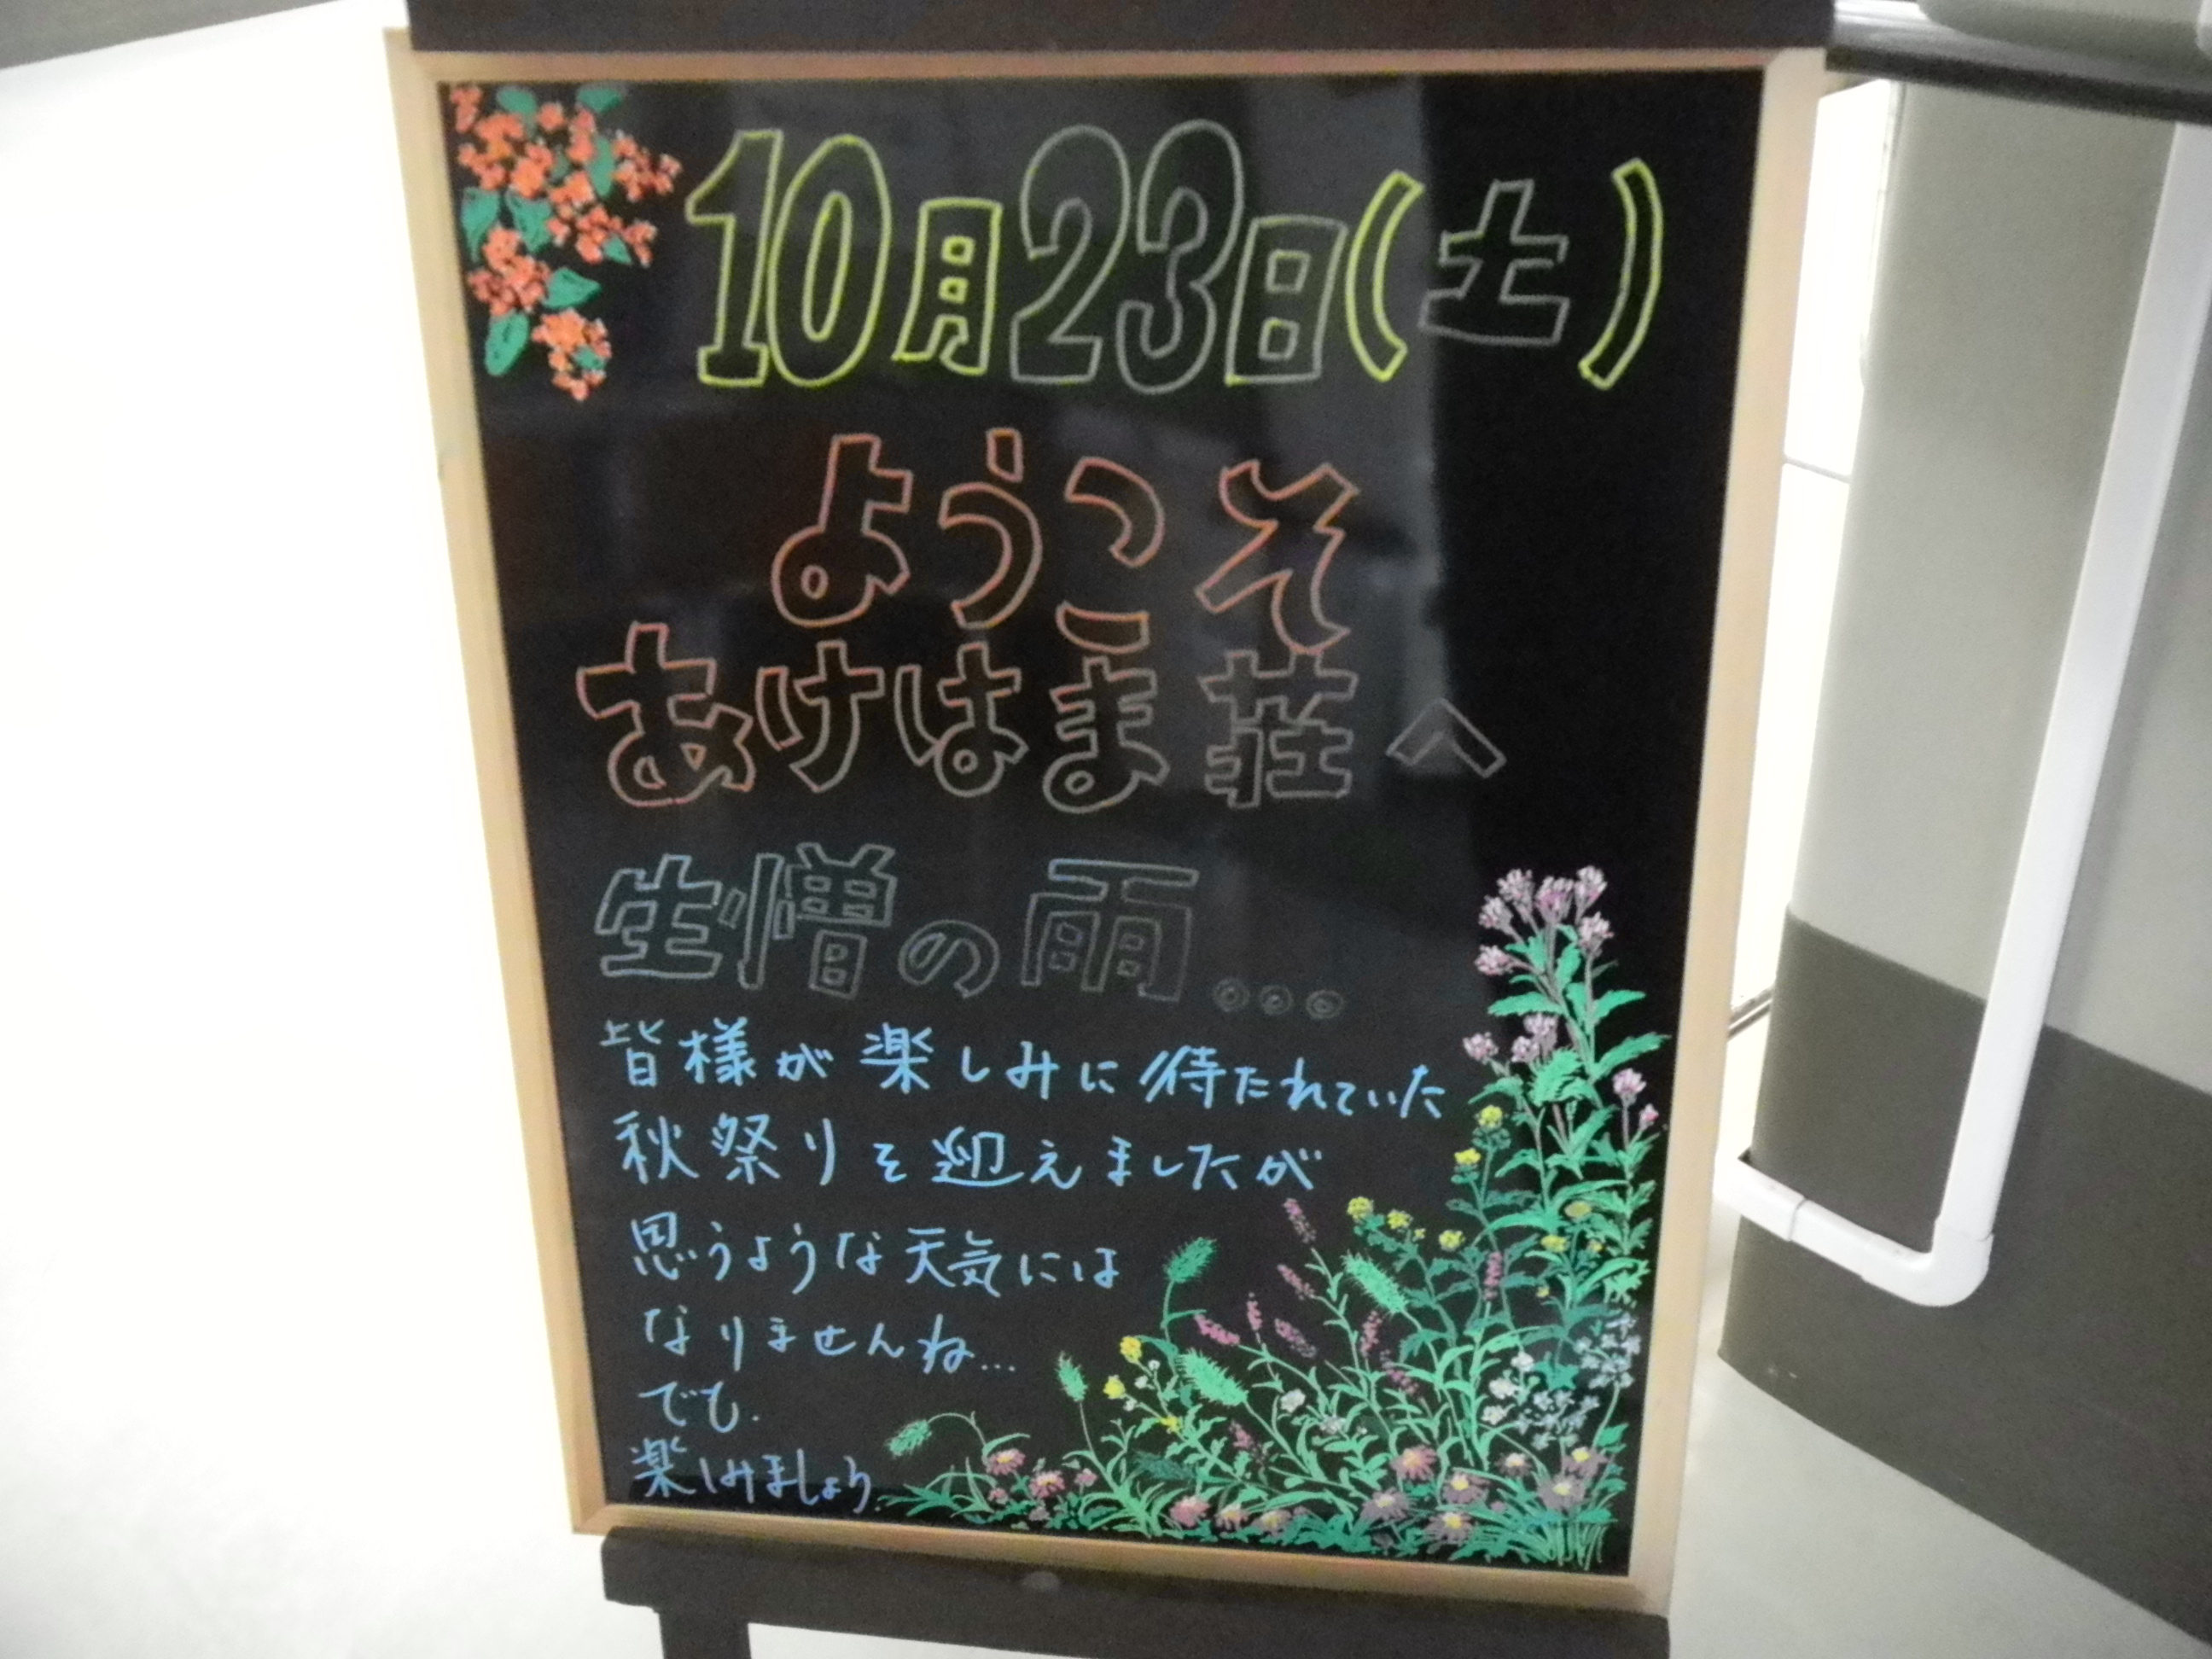 10月23日(土)
ようこそ
あけはま荘へ
生憎の雨...
皆様が楽しみに待たれていた
秋祭りを迎えましたが
思うような天気には
なりませんね...
でも、
楽しみましょう。